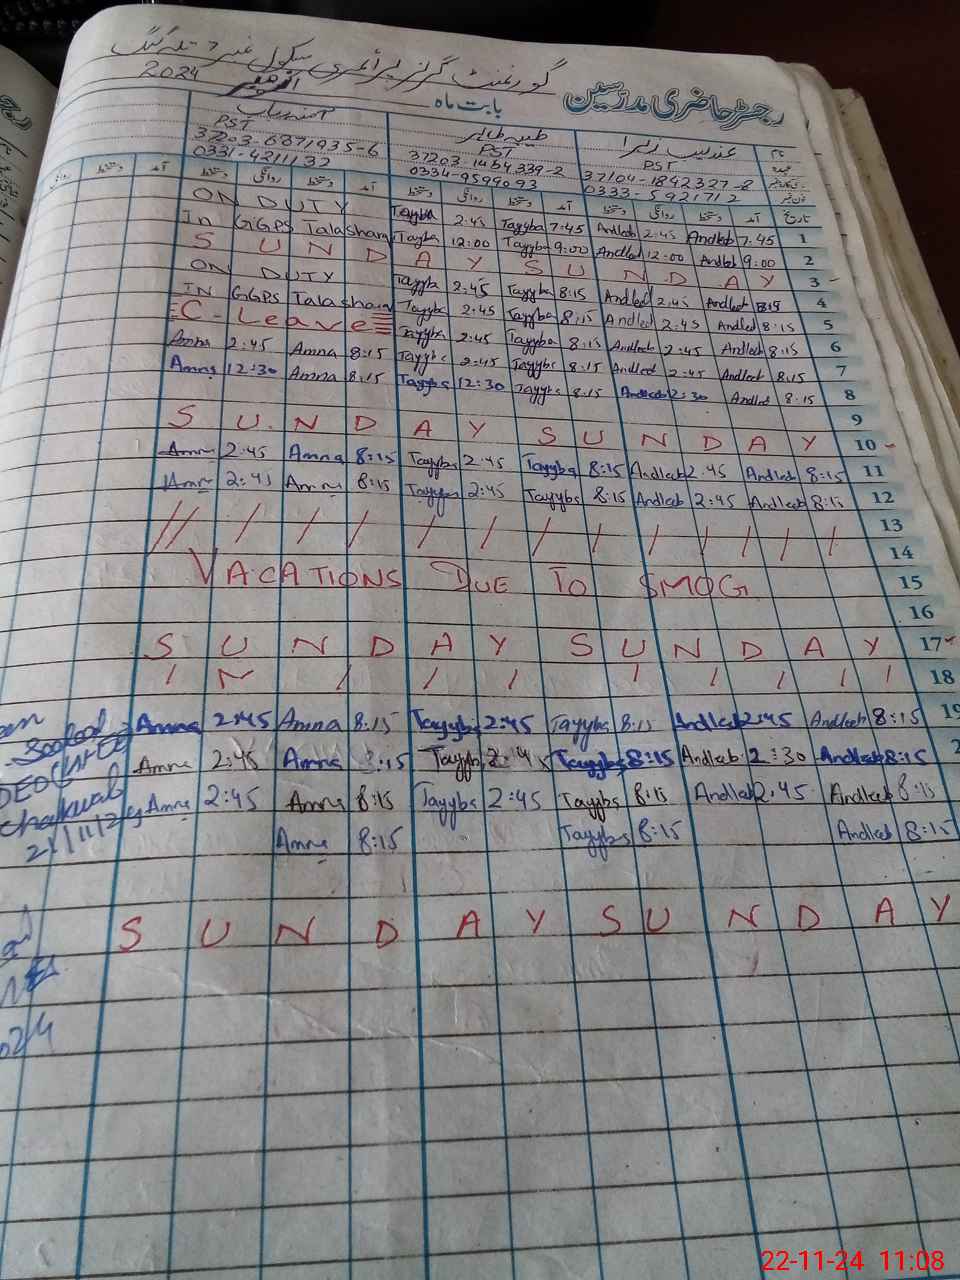 گورنمنٹ گرلز پرائمری سکول نمبر 7 تلہ گنگ
رجسٹر حاضری مدرسین بابت ماہ نومبر 2024
نام عندلیب زہرا طیبہ طاہر آمنہ
عہدہ PST PST PST
37104-1842327-8 37203-1464339-2 37203-6871935-6
0333-5921712 0334-9599093 0331-4211132
تاریخ آمد دستخط روانگی دستخط آمد دستخط روانگی دستخط آمد دستخط روانگی دستخط آمد دستخط روانگی
ON DUTY Tayyba 2:45 Tayyba 7:45 Andleeb 2:45 Andleeb 7:45 1
In GGPS Talasham Tayyba 12:00 Tayyba 9:00 Andleeb 12:00 Andleeb 9:00 2
S U N D A Y S U N D A Y 3
ON DUTY Tayyba 2:45 Tayyba 8:15 Andleeb 2:45 Andleeb 8:15 4
IN GGPS Talasham Tayyba 2:45 Tayyba 8:15 Andleeb 2:45 Andleeb 8:15 5
C-Leave Tayyba 2:45 Tayyba 8:15 Andleeb 2:45 Andleeb 8:15 6
Amna 2:45 Amna 8:15 Tayyba 2:45 Tayyba 8:15 Andleeb 2:45 Andleeb 8:15 7
Amna 12:30 Amna 8:15 Tayyba 12:30 Tayyba 8:15 Andleeb 2:30 Andleeb 8:15 8
9
S U N D A Y S U N D A Y 10
Amna 2:45 Amna 8:15 Tayyba 2:45 Tayyba 8:15 Andleeb 2:45 Andleeb 8:15 11
Amna 2:45 Amna 8:15 Tayyba 2:45 Tayyba 8:15 Andleeb 2:45 Andleeb 8:15 12
13
14
VACATIONS DUE TO SMOG 15
16
S U N D A Y S U N D A Y 17
18
Amna 2:45 Amna 8:15 Tayyba 2:45 Tayyba 8:15 Andleeb 2:45 Andleeb 8:15 19
Amna 2:45 Amna 8:15 Tayyba 2:45 Tayyba 8:15 Andleeb 2:30 Andleeb 8:15 2
Amna 2:45 Amna 8:15 Tayyba 2:45 Tayyba 8:15 Andleeb 2:45 Andleeb 8:15
Amna 8:15 Tayyba 8:15 Andleeb 8:15
Chakwal
S U N D A Y S U N D A Y
22-11-24 11:08